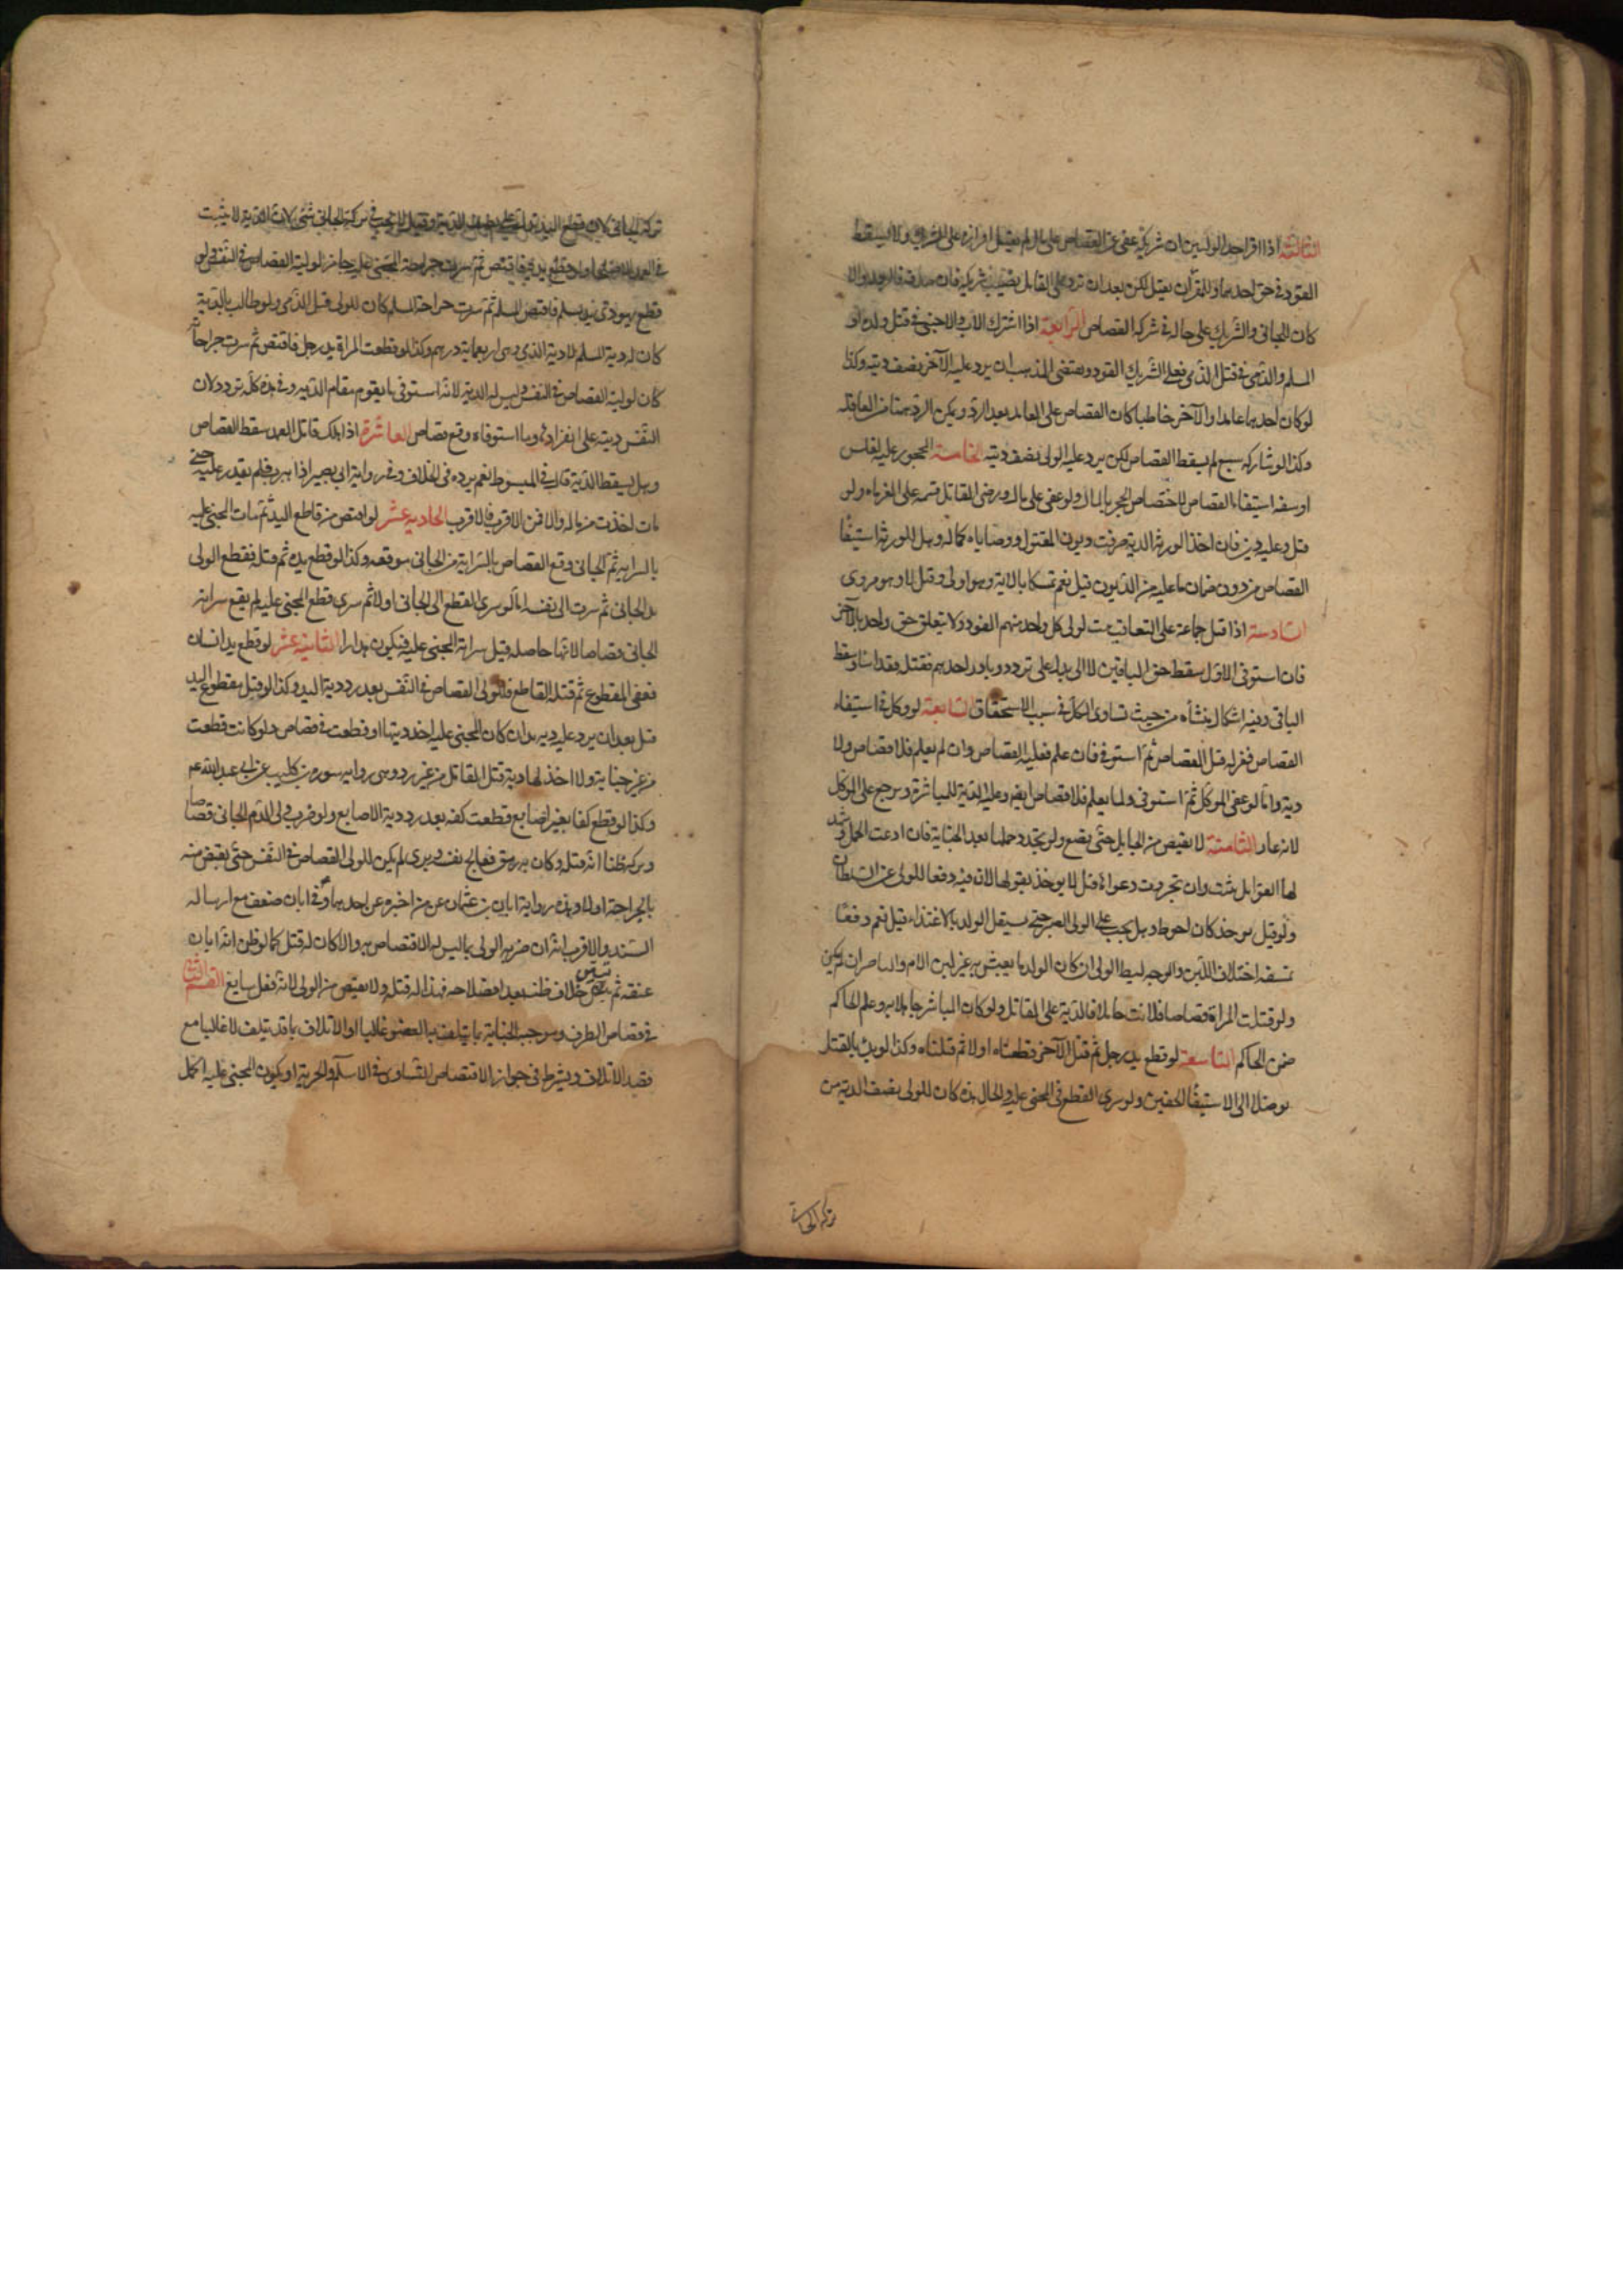 الثالثة اذا اقر احد الوليين ان شريكه عفى عن القصاص على مال لم يقبل اقراره على الشريك ولا يسقط
القود في حق احدهما وللمقر ان يقتل لكن بعد ان يرد على القاتل نصيب شريكه فان صدقه فالرد له والا
كان للجاني والشريك على حاله في شركة القصاص الرابعة اذا اشترك الاب والاجنبي في قتل ولده او
المسلم والذمي في قتل الذمي فعلى الشريك القود ويقتضي المذهب ان يرد عليه الآخر نصف ديته وكذا
لو كان احدهما عامدا والآخر خاطيا كان القصاص على العامد بعد الرد ويكن الرد هنا من العاقلة
وكذا لو شاركه سبع لم يسقط القصاص لكن يرد عليه الولى نصف ديته الخامسة المحجور عليه لفلس
او سفه استيفاء القصاص لاختصاص الحجر بالمال ولو عفى على مال ورضى القاتل قسمه على الغرماء ولو
قتل وعليه دين فان اخذ الورثة الدية صرفت في ديون المقتول ووصاياه كماله وهل للورثة استيفا
القصاص من دون ضمان ما عليه من الديون قيل نعم تمسكا بالآية وهو اولى وقيل لا وهو مروى
السادسة اذا قتل جماعة على التعاقب ثبت لولى كل واحد منهم القود ولا يتعلق حق واحد بالآخر
فان استوفى الاول سقط حق الباقين لا الى بدل على تردد ولو بادر احدهم فقتله فقد اساء وسقط
الباقى وفيه اشكال ينشأ من حيث تساوى الكل في سبب الاستحقاق السابعة لو وكل في استيفاء
القصاص فعزله قبل القصاص ثم استوفى فان علم فعليه القصاص وان لم يعلم فلا قصاص ولا
دية واما لو عفى الموكل ثم استوفى ولما يعلم فلا قصاص ايضا وعليه الدية للمباشرة ويرجع على الموكل
لانه غار الثامنة لا يقتص من الحامل حتى تضع ولو تجدد حملها بعد الجناية فان ادعت الحمل وشهد
لها القوابل ثبت وان تجردت دعواها قيل لا يوخذ بقولها لان فيه دفعا للولى عن السلطان
ولو قيل يوخذ كان احوط وهل يجب على الولى الصبر حتى يستقل الولد بالاغتذاء قيل نعم دفعا
لمشقة اختلاف اللبن والوجه تسليط الولى ان كان للولد ما يعيش به غير لبن الام والتاخير ان لم يكن
ولو قتلت المراة قصاصا فبانت حاملا فالدية على القاتل ولو كان المباشر جاهلا به وعلم الحاكم
ضمن الحاكم التاسعة لو قطع يد رجل ثم قتل الآخر قطعناه اولا ثم قتلناه وكذا لو بدا بالقتل
توصلا الى الاستيفا الحقين ولو سرى القطع في المجنى عليه والحال هذه كان للولى نصف الدية من
تركة الجاني
تركة الجاني لان قطع اليد بدل على نصف الدية وقيل لا يجب في تركة الجاني شئ لان الدية لا يثبت
في العمد الا صلحا ولو قطع يديه فاقتص ثم سرت جراحة المجنى عليه جاز لوليه القصاص في النفس ولو
قطع يهودى يد مسلم فاقتص المسلم ثم سرت جراحة المسلم كان للولى قتل الذمى ولو طالب بالدية
كان له دية المسلم الا دية الذمى وهى اربعمائة درهم وكذا لو قطعت المراة يد رجل فاقتص ثم سرت جراحاته
كان لوليه القصاص في النفس وليس له الدية لانه استوفى ما يقوم مقام الدية وفي هذه كله تردد لان
النفس دية على انفرادها وما استوفاه وقع قصاص العاشرة اذا هلك قاتل العمد سقط القصاص
وهل يسقط الدية قال في المبسوط نعم تردد في الخلاف وفي رواية ابى بصير اذا هرب فلم يقدر عليه حتى
مات اخذت من ماله والا فمن الاقرب فالاقرب الحادية عشر لو اقتص من قاطع اليد ثم مات المجنى عليه
بالسراية ثم الجاني وقع القصاص بالسراية من الجاني موقعه وكذا لو قطع يده ثم قتله فقطع الولى
يد الجاني ثم سرت الى نفسه اما لو سرى القطع الى الجاني اولا ثم سرى قطع المجنى عليه لم يقع سراية
الجاني قصاصا لانها حاصله قبل سراية المجنى عليه فيكون هدرا الثانية عشر لو قطع يد انسان
فعفى المقطوع ثم قتله القاطع فللولى القصاص في النفس بعد رد دية اليد وكذا لو قتل مقطوع اليد
قتل بعد ان يرد عليه دية يده ان كان المجنى عليه اخذ ديتها او قطعت في قصاص ولو كانت قطعت
من غير جناية ولا اخذ لها دية قتل القاتل من غير رد وهى رواية سورة بن كليب عن ابى عبد الله عم
وكذا لو قطع كفا بغير اصابع قطعت كفه بعد رد دية الاصابع ولو ضرب ولى الدم الجاني قصاصا
وتركه ظنا انه قتله وكان به رمق فعالج نفسه وبرى لم يكن للولى القصاص في النفس حتى يقتص منه
بالجراحة اولا وهذه رواية ابان بن عثمان عمن اخبره عن احدهما وفي ابان ضعف مع ارساله
السند والاقرب انه ان ضربه الولى بما ليس له الاقتصاص به والا كان له قتله كما لو ظن انه ابان
عنقه ثم تبين خلاف ظنه بعد انصلاحه فهذا له قتله ولا يقتص من الولى لانه فعل سايغ القسم الثانى
في قصاص الطرف وموجبه الجناية بما يتلف به العضو غالبا او الاتلاف بما قد يتلف لا غالبا مع
قصد الاتلاف ويشترط في جواز الاقتصاص التساوى في الاسلام والحرية او يكون المجنى عليه اكمل